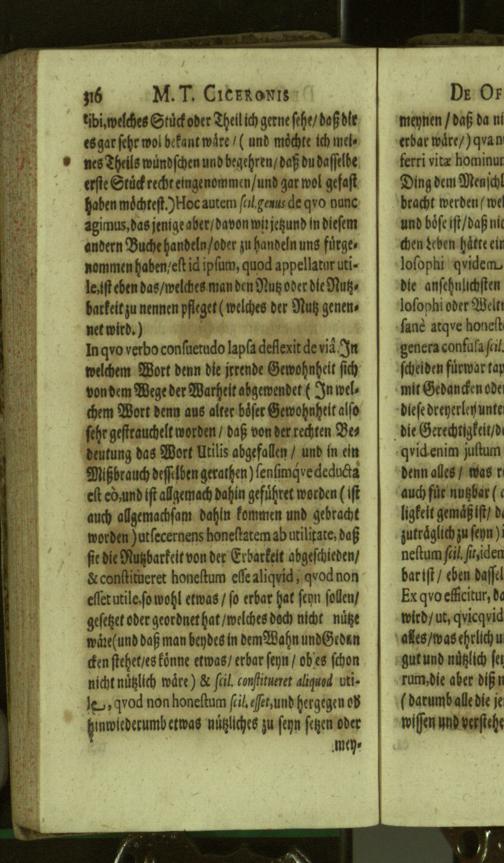 316 M. T. CICERONIS
tibi, welches Stück oder Theil ich gerne sehe/ daß dir
es gar sehr wol bekant wäre/ ( und möchte ich mei-
nes Theils wündschen und begehren/ daß du dasselbe
erste Stück recht eingenommen/ und gar wol gefast
haben möchtest.) Hoc autem scil. genus de qvo nunc
agimus, das jenige aber/ davon wir jetzund in diesem
andern Buche handeln/ oder zu handeln uns fürge-
nommen haben/ est id ipsum, quod appellatur uti-
le, ist eben das/ welches man den Nutz oder die Nutz-
barkeit zu nennen pfleget ( welches der Nutz genen-
net wird.)
In qvo verbo consuetudo lapsa deflexit de viâ. In
welchem Wort denn die jrrende Gewohnheit sich
von dem Wege der Warheit abgewendet ( In wel-
chem Wort denn aus alter böser Gewohnheit also
sehr gestrauchelt worden/ daß von der rechten Be-
deutung das Wort Utilis abgefallen/ und in ein
Mißbrauch desselben gerathen ) sensimqve deducta
est eò, und ist allgemach dahin geführet worden ( ist
auch allgemachsam dahin kommen und gebracht
worden ) ut secernens honestatem ab utilitate, daß
sie die Nutzbarkeit von der Erbarkeit abgeschieden/
& constitueret honestum esse aliqvid, qvod non
esset utile, so wohl etwas/ so erbar hat seyn sollen/
gesetzet oder geordnet hat/ welches doch nicht nütze
wäre ( und daß man beydes in dem Wahn und Gedan
cken stehet/ es könne etwas/ erbar seyn/ ob es schon
nicht nützlich wäre ) & scil. constitueret aliquod uti-
le, qvod non honestum scil. esset, und hergegen ob
hinwiederumb etwas nützliches zu seyn setzen oder
mey-
DE OF
meynen/ daß da ni
erbar wäre/ ) qva n
ferri vitæ hominum
Ding dem Menschl
bracht werden/ wel
und böse ist/ daß nic
chen Leben hätte ein
losophi qvidem
die ansehnlichsten
losophi oder Welt
sanè atqve honest
genera confusa scil.
scheiden fürwar tap
mit Gedancken ode
diese dreyerley unte
die Gerechtigkeit/ d
qvid enim justum
denn alles/ was r
auch für nutzbar (
ligkeit gemäß ist/ d
zuträglich zu seyn )
nestum scil. sit, idem
bar ist/ eben dassel
Ex qvo efficitur, da
wird/ ut, qvicqvid
alles/ was ehrlich u
gut und nützlich sey
rum, die aber diß n
( darumb alle die je
wissen und verstehe